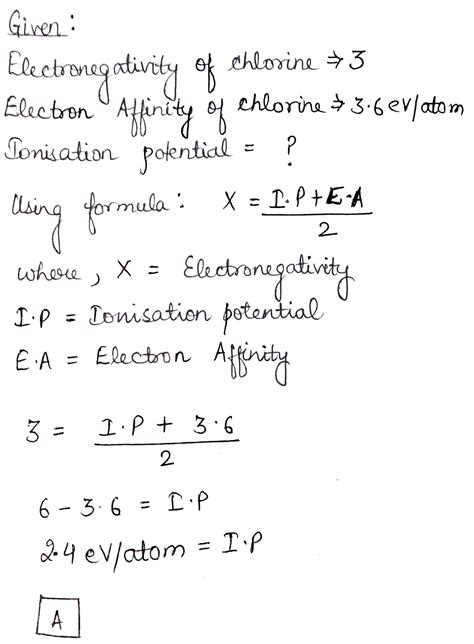 Given:
Electronegativity of chlorine ⇒ 3
Electron Affinity of chlorine ⇒ 3.6 eV/atom
Ionisation potential = ?
Using formula: X = I.P + E.A / 2
where, X = Electronegativity
I.P = Ionisation potential
E.A = Electron Affinity
3 = I.P + 3.6 / 2
6 - 3.6 = I.P
2.4 eV/atom = I.P
A